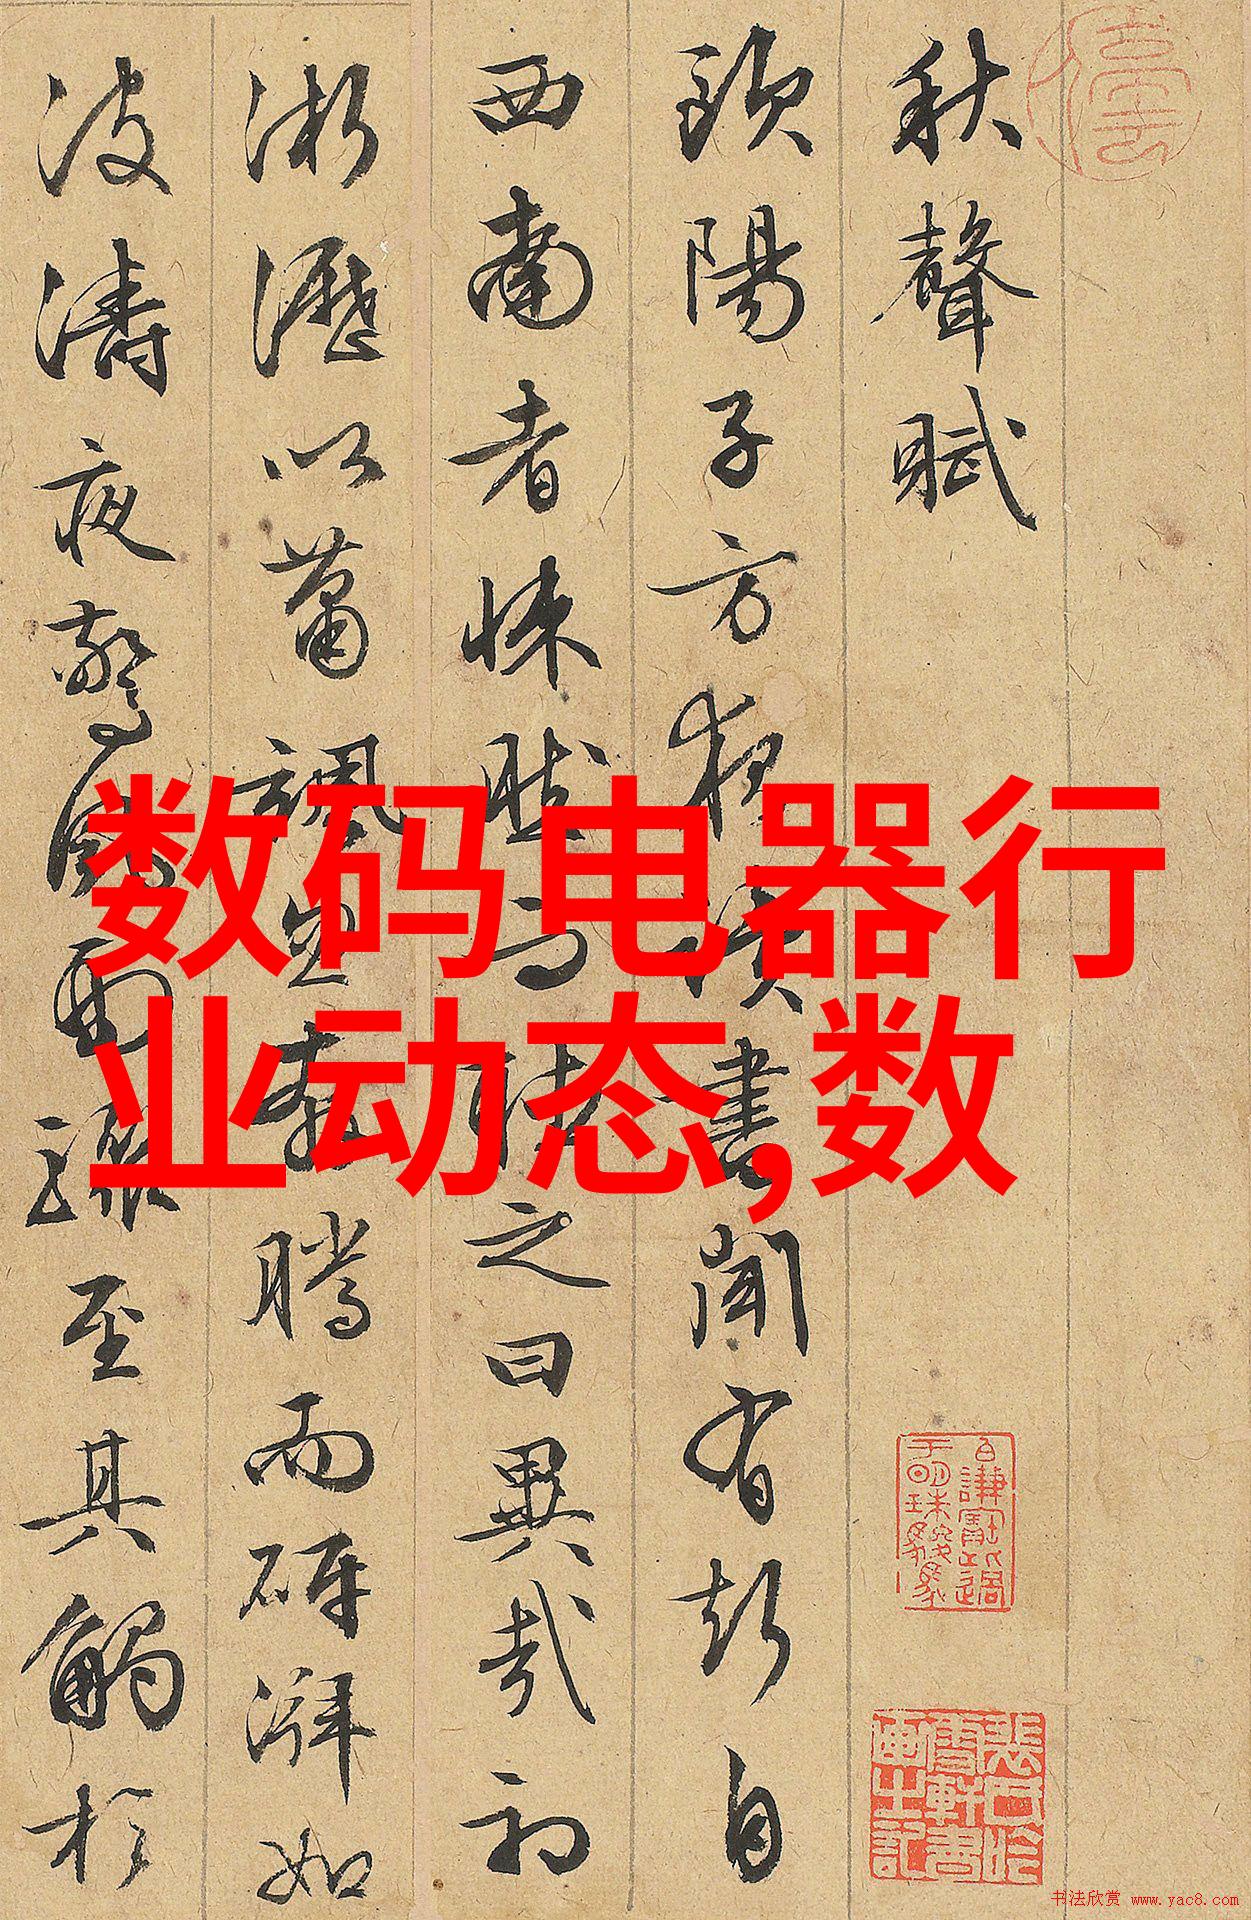 秋聲賦
歐陽子方夜讀書聞有聲自
西南者悚然而聽之曰異哉初
淅瀝以蕭颯忽奔騰而砰湃如
波濤夜驚風雨驟至其觸於
数码电器行
业动态,数
书法欣赏 www.yac8.com